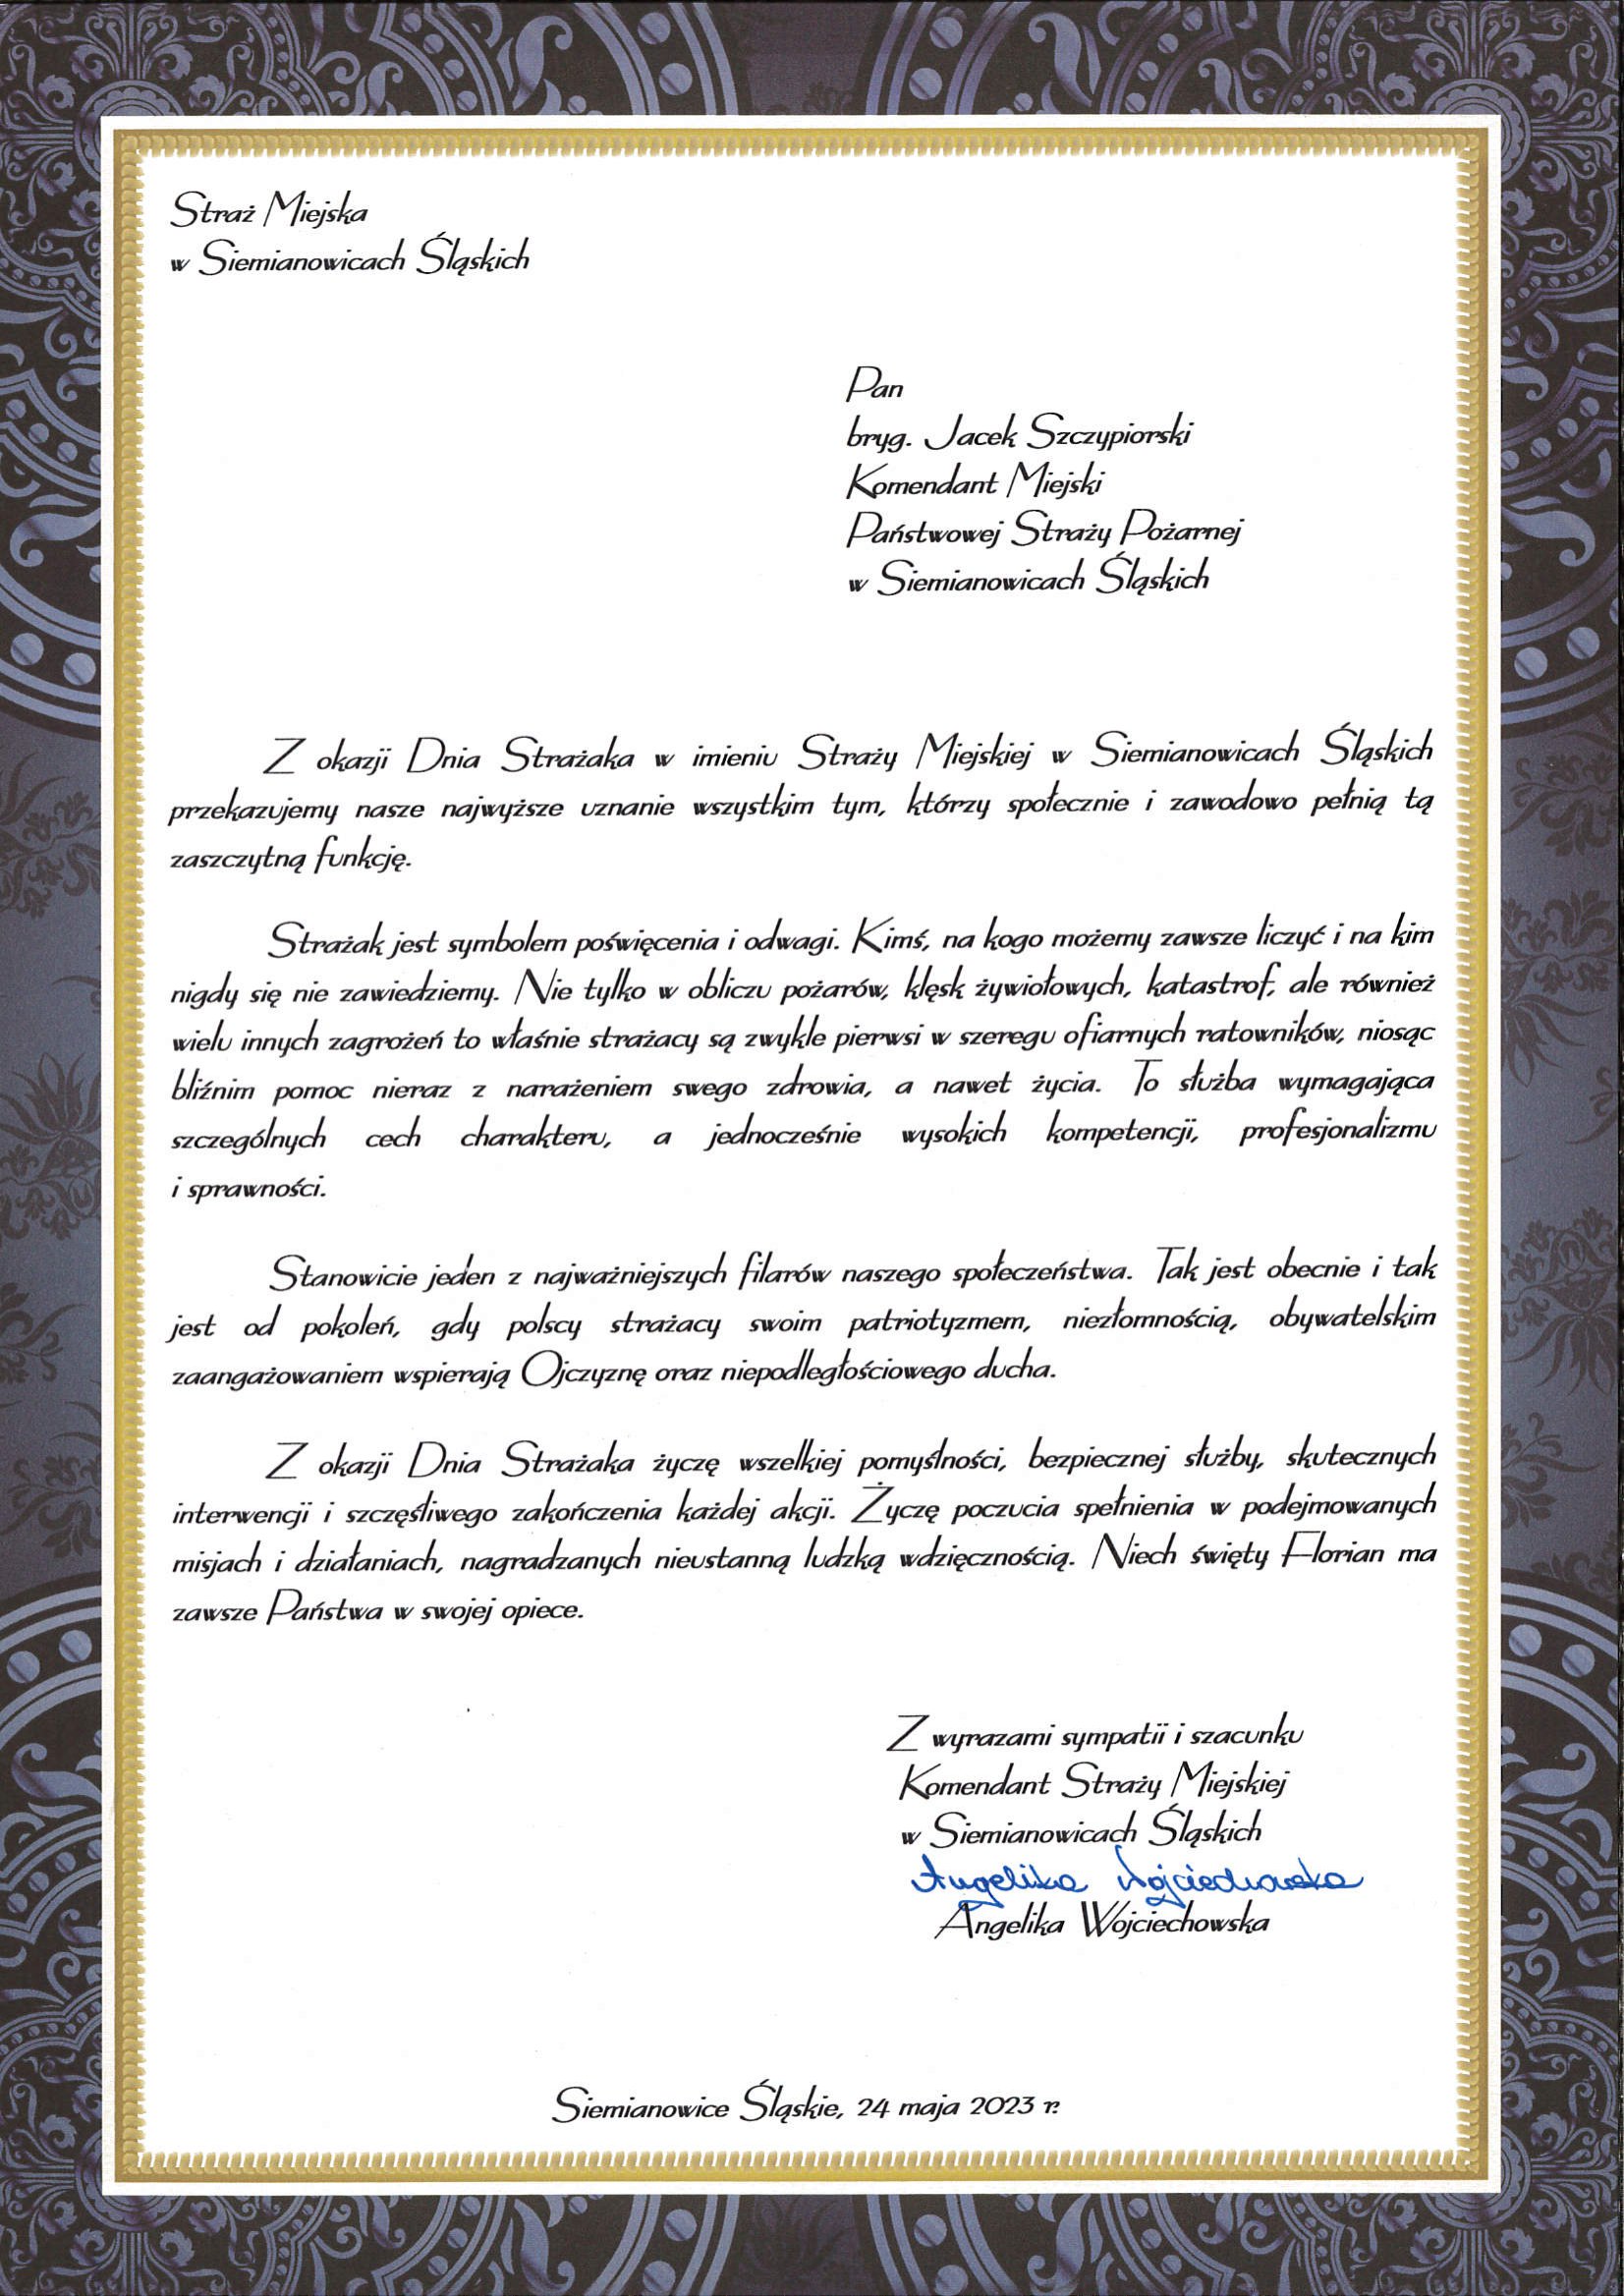 Straż Miejska
w Siemianowicach Śląskich
Pan
bryg. Jacek Szczypiorski
Komendant Miejski
Państwowej Straży Pożarnej
w Siemianowicach Śląskich
Z okazji Dnia Strażaka w imieniu Straży Miejskiej w Siemianowicach Śląskich
przekazujemy nasze najwyższe uznanie wszystkim tym, którzy społecznie i zawodowo pełnią tą
zaszczytną funkcję.
Strażak jest symbolem poświęcenia i odwagi. Kimś, na kogo możemy zawsze liczyć i na kim
nigdy się nie zawiedziemy. Nie tylko w obliczu pożarów, klęsk żywiołowych, katastrof, ale również
wielu innych zagrożeń to właśnie strażacy są zwykle pierwsi w szeregu ofiarnych ratowników, niosąc
bliźnim pomoc nieraz z narażeniem swego zdrowia, a nawet życia. To służba wymagająca
szczególnych cech charakteru, a jednocześnie wysokich kompetencji, profesjonalizmu
i sprawności.
Stanowicie jeden z najważniejszych filarów naszego społeczeństwa. Tak jest obecnie i tak
jest od pokoleń, gdy polscy strażacy swoim patriotyzmem, niezłomnością, obywatelskim
zaangażowaniem wspierają Ojczyznę oraz niepodległościowego ducha.
Z okazji Dnia Strażaka życzę wszelkiej pomyślności, bezpiecznej służby, skutecznych
interwencji i szczęśliwego zakończenia każdej akcji. Życzę poczucia spełnienia w podejmowanych
misjach i działaniach, nagradzanych nieustanną ludzką wdzięcznością. Niech święty Florian ma
zawsze Państwa w swojej opiece.
Z wyrazami sympatii i szacunku
Komendant Straży Miejskiej
w Siemianowicach Śląskich
Angelika Wojciechowska
Angelika Wojciechowska
Siemianowice Śląskie, 24 maja 2023 r.